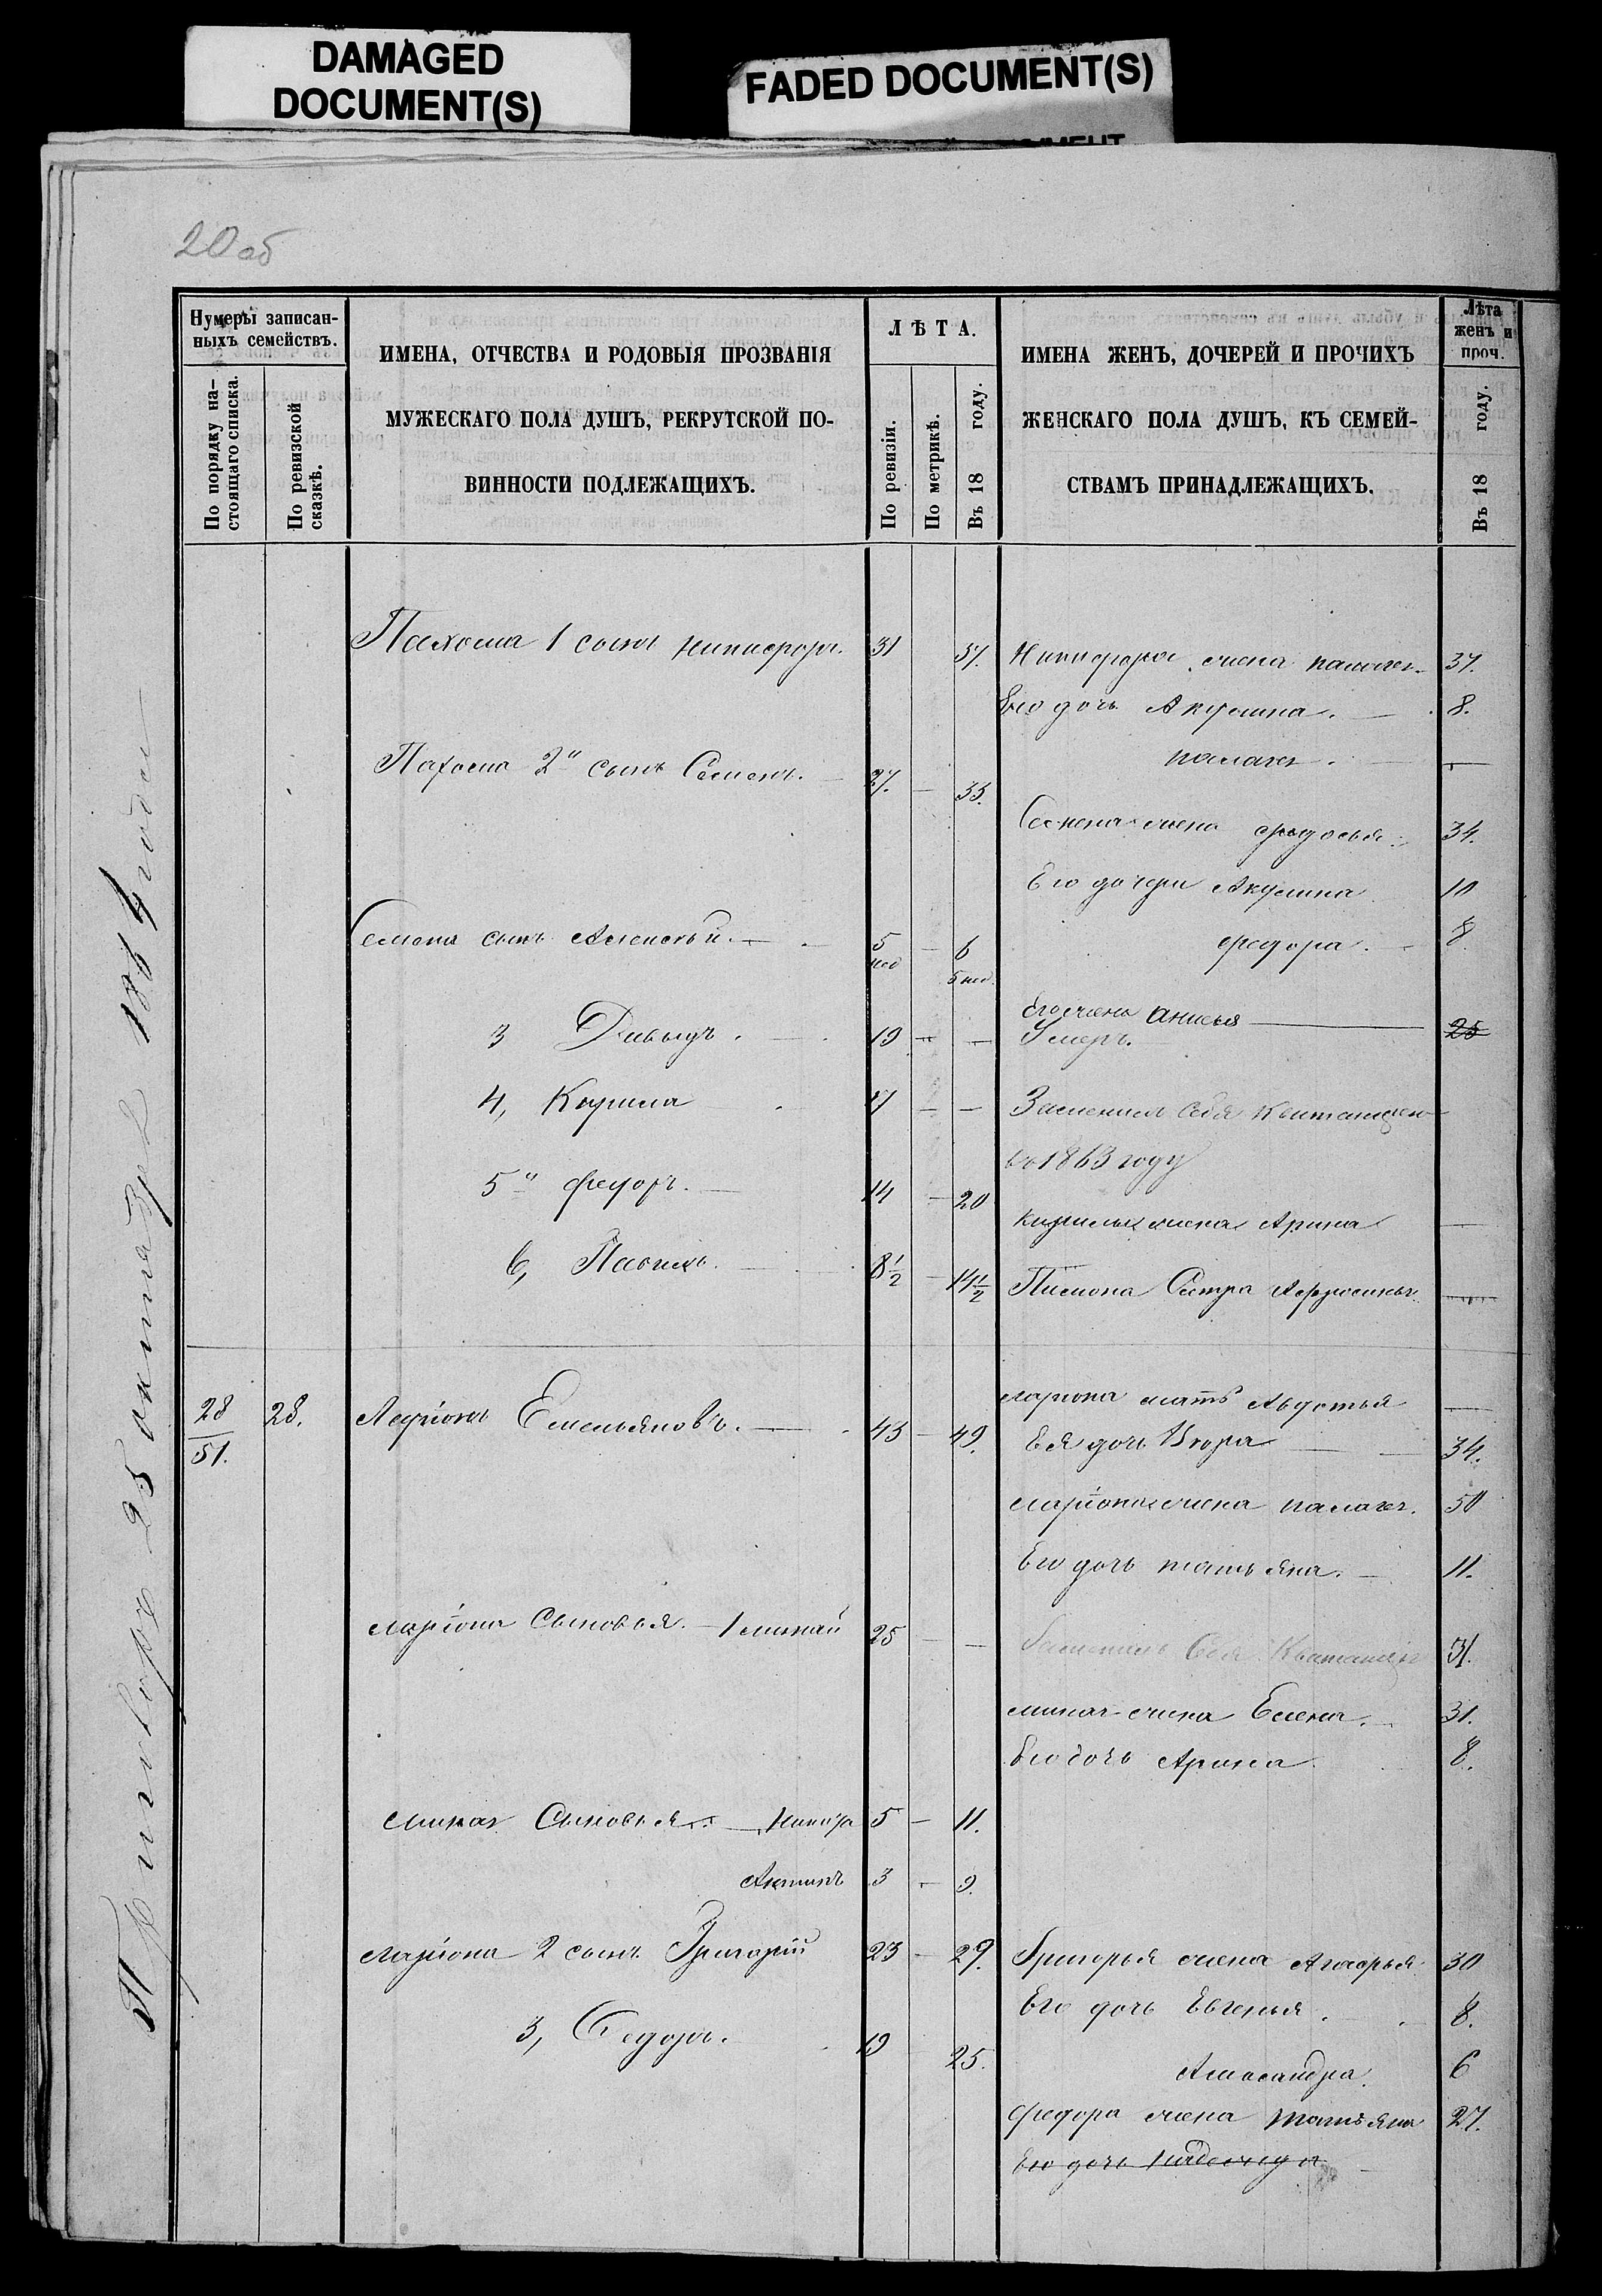 DAMAGED
DOCUMENT(S)
FADED DOCUMENT(S)
20 об
Нумеры записан-
ныхъ семействъ.
По порядку на-
стоящаго списка.
По ревизской
сказкѣ.
ИМЕНА, ОТЧЕСТВА И РОДОВЫЯ ПРОЗВАНІЯ
МУЖЕСКАГО ПОЛА ДУШЪ, РЕКРУТСКОЙ ПО-
ВИННОСТИ ПОДЛЕЖАЩИХЪ.
ЛѢТА.
По ревизіи.
По метрикѣ.
Въ 18 году.
ИМЕНА ЖЕНЪ, ДОЧЕРЕЙ И ПРОЧИХЪ
ЖЕНСКАГО ПОЛА ДУШЪ, КЪ СЕМЕЙ-
СТВАМЪ ПРИНАДЛЕЖАЩИХЪ.
Лѣта
женъ и
проч.
Въ 18 году.
Пахома 1 сынъ Никифоръ. 31 37. Никифора жена палагея 37.
Его дочь Акулина. 8.
палагея. —
Пахома 2й сынъ Семенъ. 27. — 33.
Семена жена федосья. 34.
Его дочери Акулина 10
Семена сынъ Алексѣй. — 5 нед — 6 5 нед. федора. 8.
Его жена Анисья — 25
3 Давыдъ. 19 — — Умеръ.
4, Кирила 17 — — Заменилъ себя квитанцею
въ 1863 году
5й федоръ. — 14 — 20
кирилы жена Арина —
6, Павелъ. 8½ — 14½ Пимона Сестра Афросинья —
28
51.
28. Ларіонъ Емельяновъ. — 43 — 49.
лариона мать Авдотья —
Ея дочь 34.
ларіона жена палагея. 50
Его дочь татьяна. — 11.
ларіона Сыновья. — 1 минай 25 — — Заменилъ Себя Квитанцею 31.
миная жена Елена. 31.
Его дочь Арина. 8.
миная Сыновья — 5 — 11.
3 — 9.
ларіона 2 сынъ Григорій 23 — 29. Григорья жена Агафья 30
Его дочь Евгенья. 8.
3, Федоръ. 19 25.
Александра. 6
федора жена татьяна 27.
Его дочь Надежда
Приговоръ 25 октября 1864 года